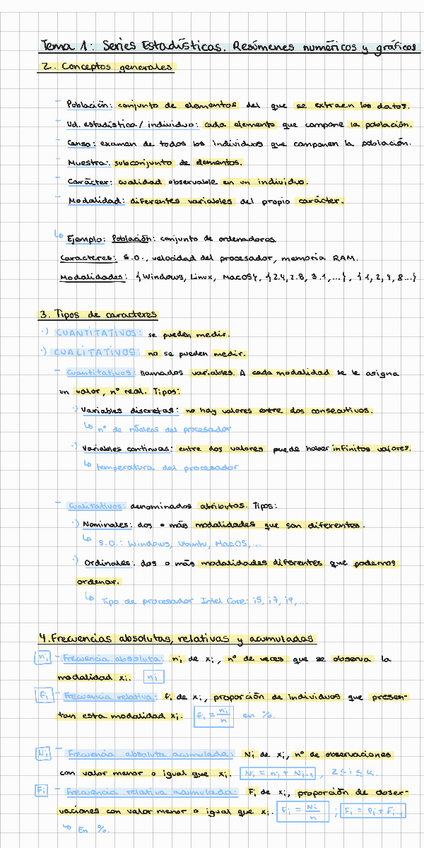 Tema 1: Series Estadísticas. Resúmenes numéricos y gráficos
2. Conceptos generales
- Población: conjunto de elementos del que se extraen los datos.
- Ud. estadística / individuo: cada elemento que compone la población.
- Censo: examen de todos los individuos que componen la población.
- Muestra: subconjunto de elementos.
- Carácter: cualidad observable en un individuo.
- Modalidad: diferentes variables del propio carácter.
↳ Ejemplo: Población: conjunto de ordenadores
Caracteres: S.O., velocidad del procesador, memoria RAM.
Modalidades: {Windows, Linux, MacOS}, {2.4, 2.8, 3.1,...}, {1, 2, 4, 8...}
3. Tipos de caracteres
·) CUANTITATIVOS: se pueden medir.
·) CUALITATIVOS: no se pueden medir.
- Cuantitativos: llamados variables. A cada modalidad se le asigna
un valor, nº real. Tipos:
·) Variables discretas: no hay valores entre dos consecutivos.
↳ nº de núcleos del procesador
·) Variables continuas: entre dos valores puede haber infinitos valores.
↳ temperatura del procesador
- Cualitativos: denominados atributos. Tipos:
·) Nominales: dos o más modalidades que son diferentes.
↳ S.O.: Windows, Ubuntu, MacOS,...
·) Ordinales: dos o más modalidades diferentes que podemos
ordenar.
↳ Tipo de procesador Intel Core: i5, i7, i9,...
4. Frecuencias absolutas, relativas y acumuladas
ni - Frecuencia absoluta: ni de xi, nº de veces que se observa la
modalidad xi. ni
fi - Frecuencia relativa: fi de xi, proporción de individuos que presen-
tan esta modalidad xi. fi = ni/n en %.
Ni - Frecuencia absoluta acumulada: Ni de xi, nº de observaciones
con valor menor o igual que xi. Ni = ni + Ni-1, 2 ≤ i ≤ k.
Fi - Frecuencia relativa acumulada: Fi de xi, proporción de obser-
vaciones con valor menor o igual que xi. Fi = Ni/n, Fi = fi + Fi-1
↳ En %.